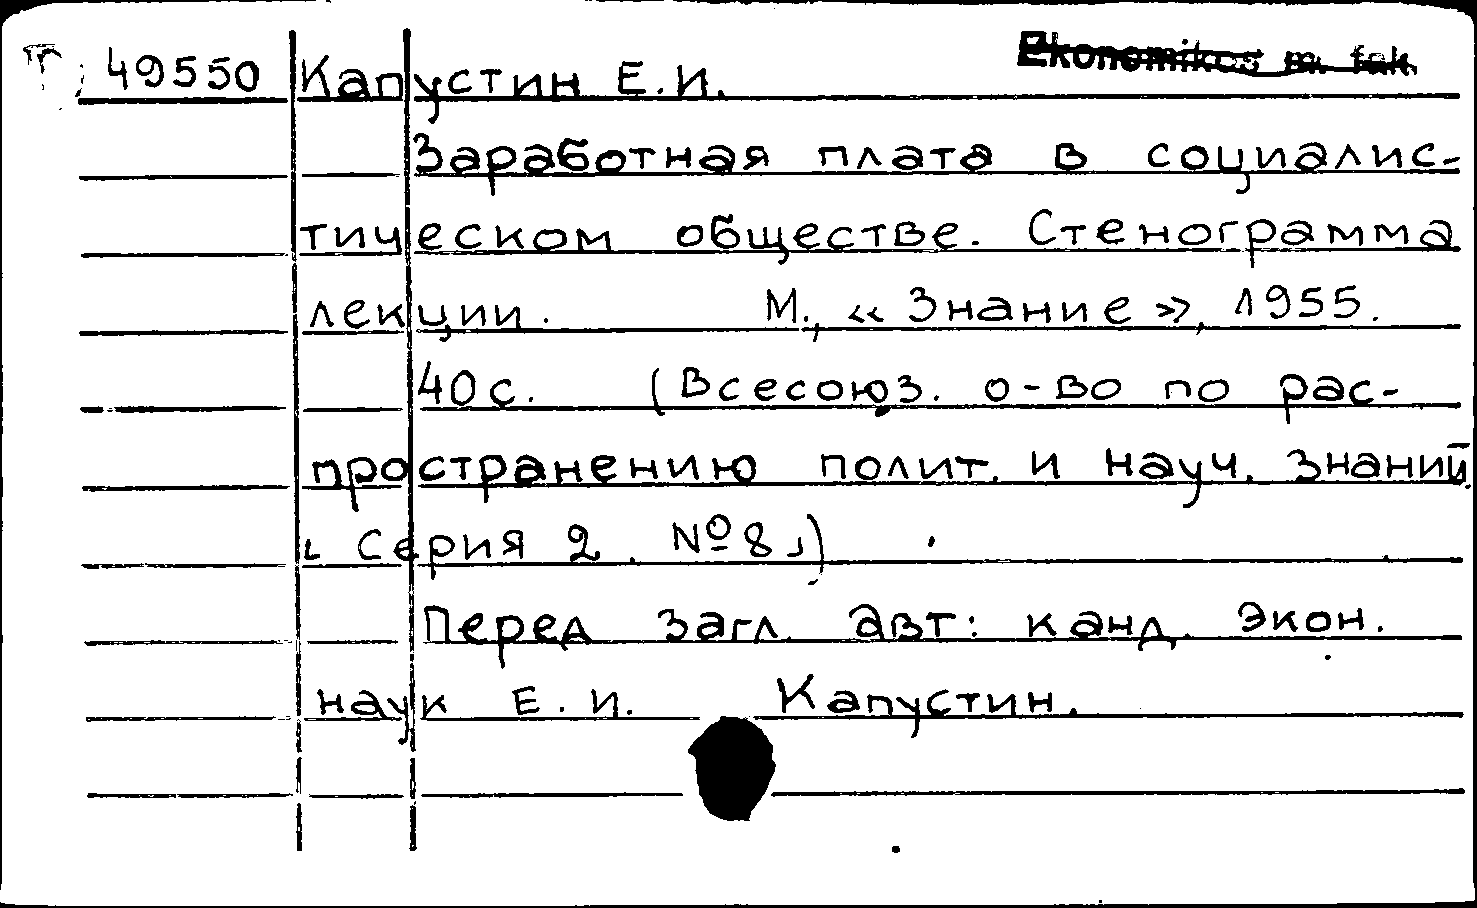 Ekonomikos m. fak.
49550 Капустин Е.И.
Заработная плата в социалис-
тическом обществе. Стенограмма
лекции. М., «Знание», 1955.
40 с. (Всесоюз. о-во по рас-
пространению полит. и науч. знаний.
Серия 2. № 8)
Перед загл. авт: канд. экон.
наук Е.И. Капустин.